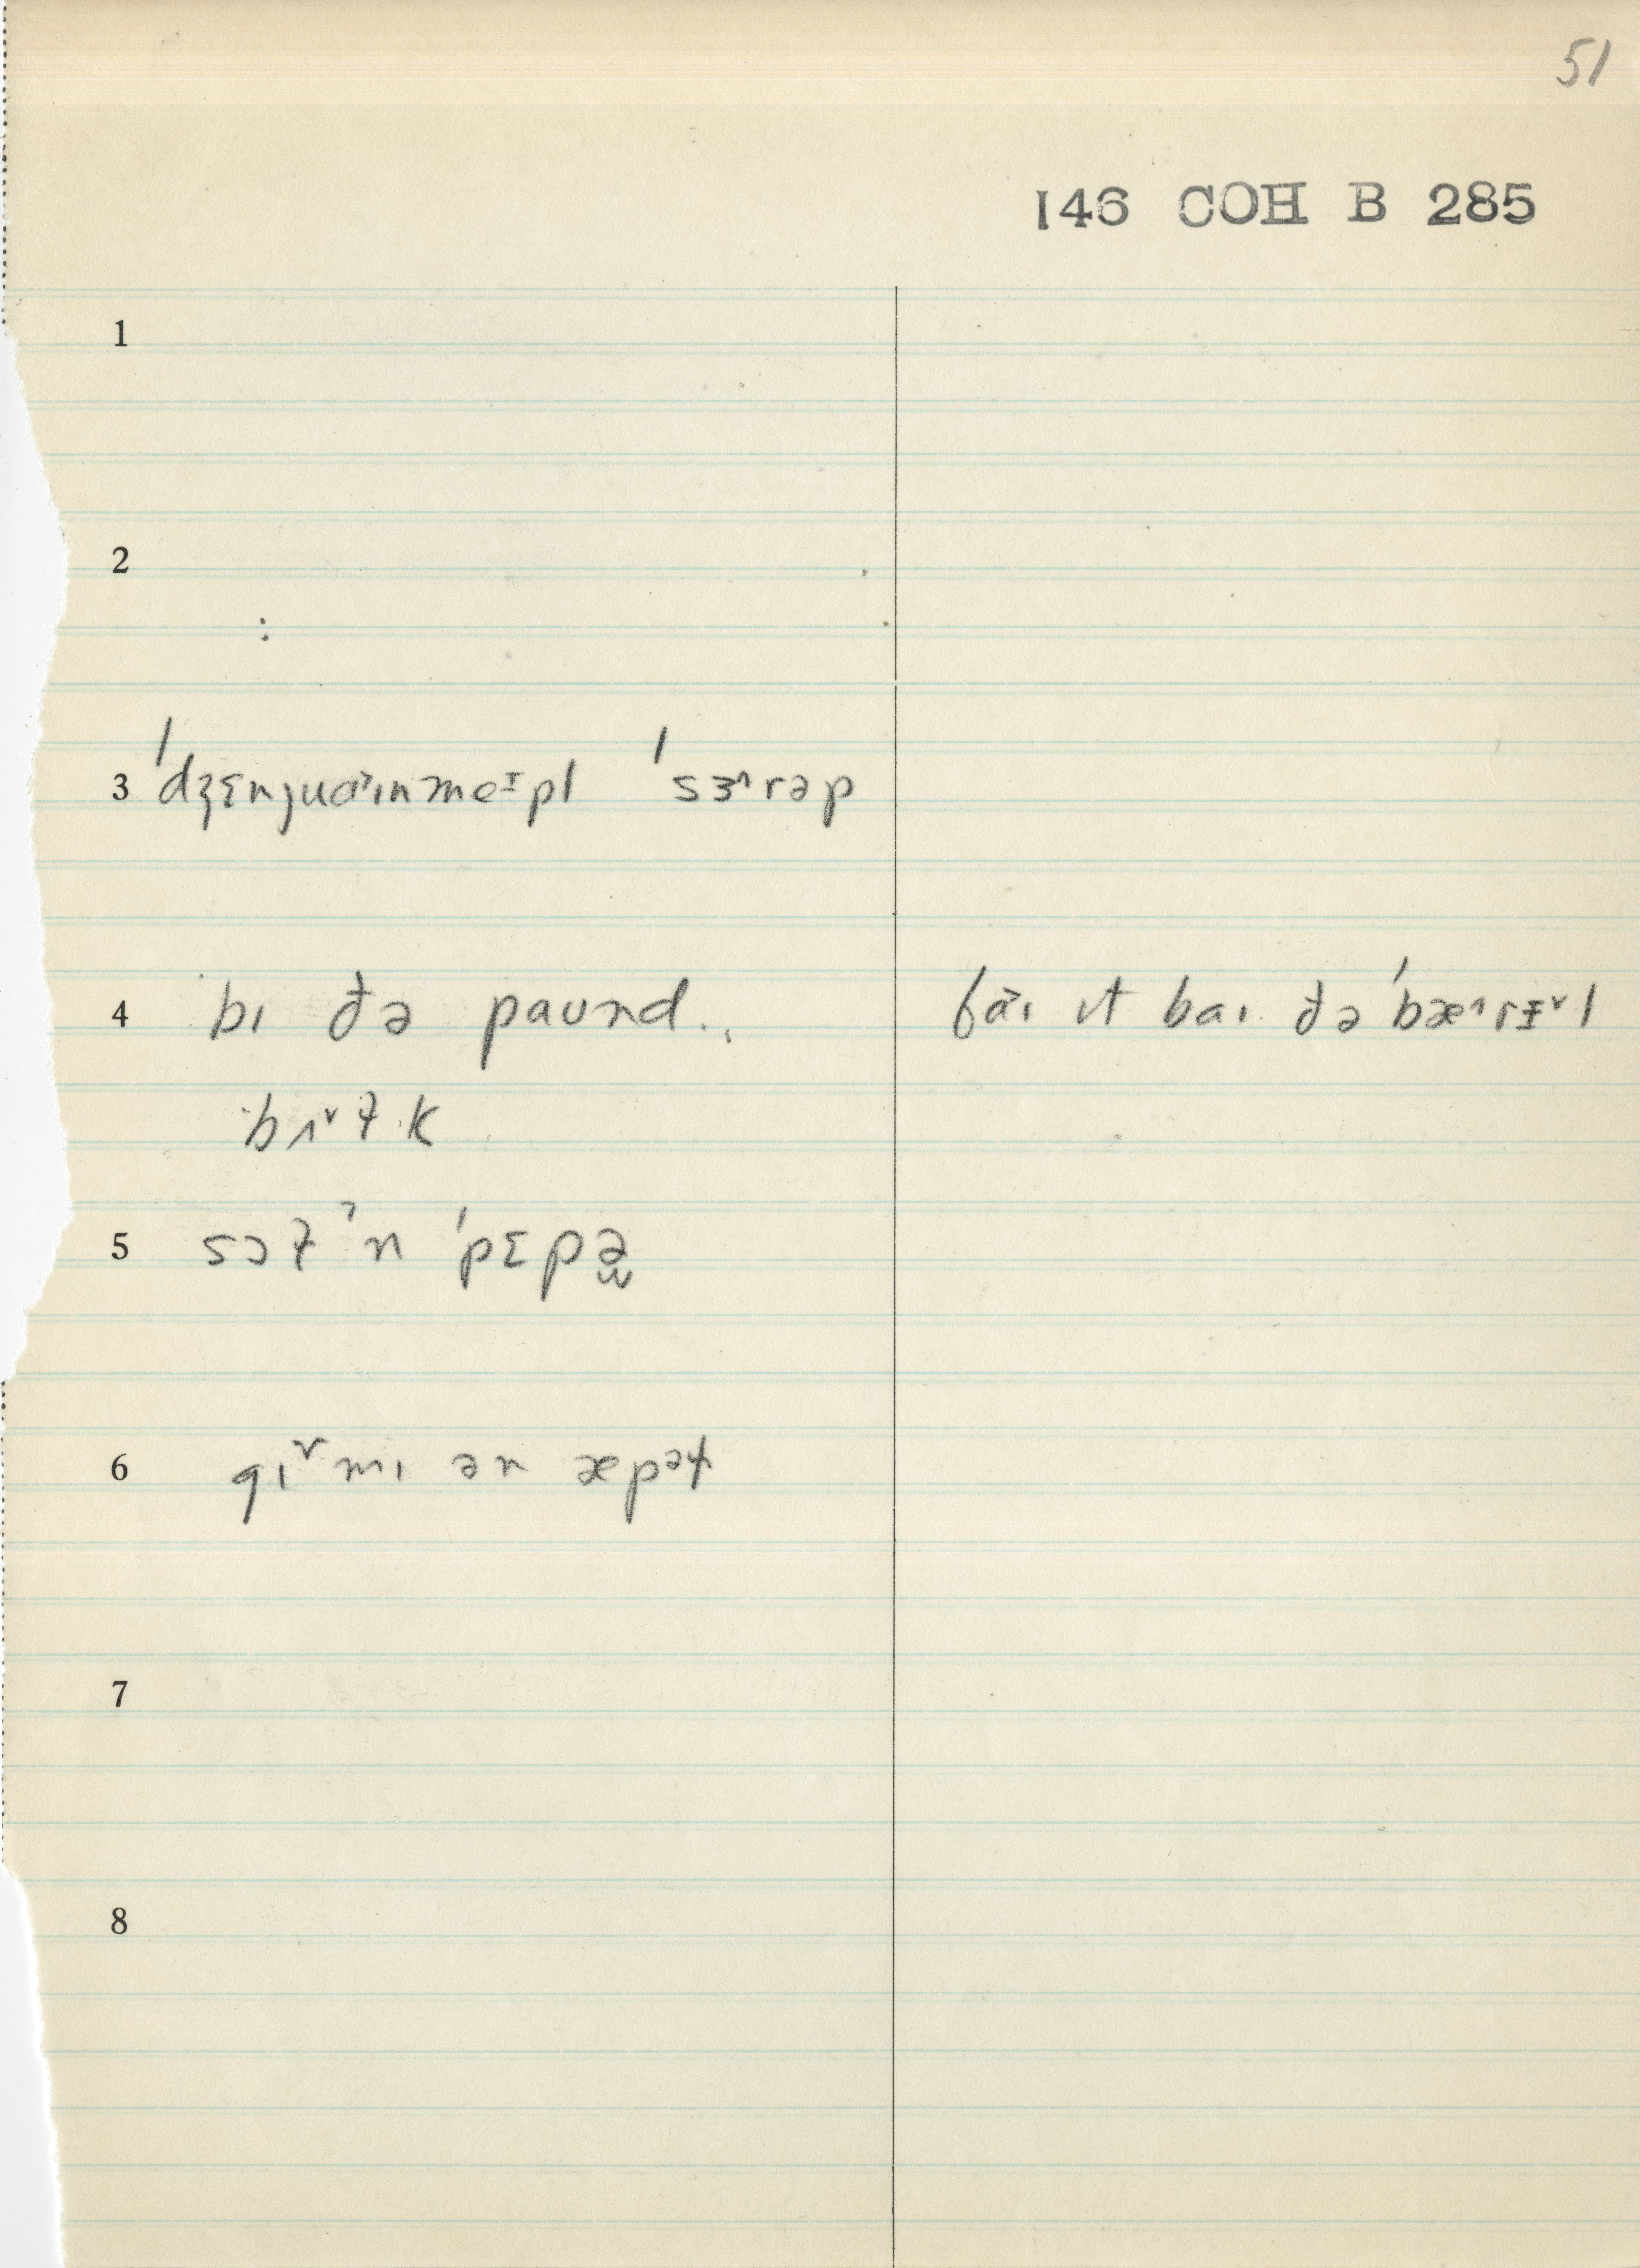 51
146 COH B 285
1
2
:
3 ˈdʒɛnjuɑ˃ɪnmeᵻpl ˈsɜ˄rəp
4 bɪ ðə paʊnd. baɪ ɪt baɪ ðə ˈbæ˄rᵻ˅l
bʌ˅ɫk
5 sɔɫ ˀn ˈpɛpə̯
6 gɪ˅mɪ ən æpəɫ
7
8